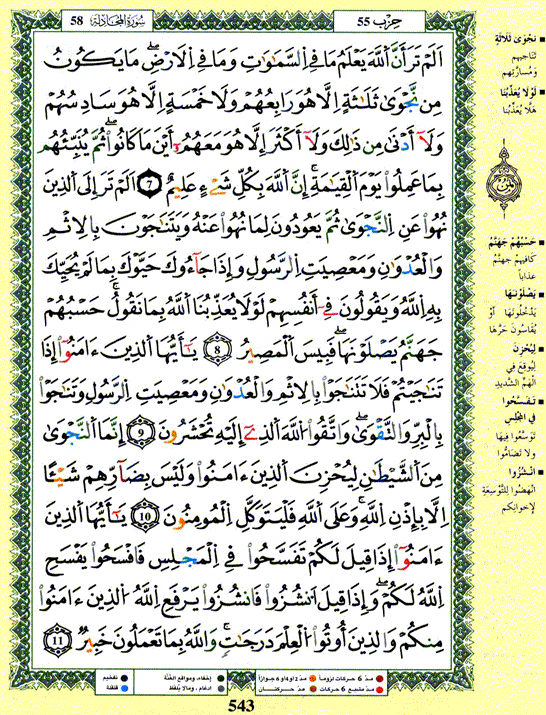 حِزْب 55
سُورَةُ المُجَادلَة 58
اَلَمْ تَرَ أَنَّ اَللَّهَ يَعْلَمُ مَا فِے اِلسَّمَٰوَٰتِ وَمَا فِے اِلَارْضِۖ مَا يَكُونُ
مِن نَّجْوَىٰ ثَلَٰثَةٍ اِلَّا هُوَ رَابِعُهُمْ وَلَا خَمْسَةٍ اِلَّا هُوَ سَادِسُهُمْ
وَلَآ أَدْنَىٰ مِن ذَٰلِكَ وَلَآ أَكْثَرَ إِلَّا هُوَ مَعَهُمُۥٓ أَيْنَ مَا كَانُواْۖ ثُمَّ يُنَبِّئُهُم
بِمَا عَمِلُواْ يَوْمَ اَلْقِيَٰمَةِۚ إِنَّ اَللَّهَ بِكُلِّ شَےْءٍ عَلِيمٌۖ 7 اَلَمْ تَرَ إِلَى اَلذِينَ
نُهُواْ عَنِ اِلنَّجْوَىٰ ثُمَّ يَعُودُونَ لِمَا نُهُواْ عَنْهُ وَيَتَنَٰجَوْنَ بِالِاثْمِ
وَالْعُدْوَٰنِ وَمَعْصِيَتِ اِلرَّسُولِ وَإِذَا جَآءُوكَ حَيَّوْكَ بِمَا لَمْ يُحَيِّكَ
بِهِ اِللَّهُ وَيَقُولُونَ فِےٓ أَنفُسِهِمْ لَوْلَا يُعَذِّبُنَا اَللَّهُ بِمَا نَقُولُۚ حَسْبُهُمْ
جَهَنَّمُ يَصْلَوْنَهَاۖ فَبِيسَ اَلْمَصِيرُۖ 8 يَٰٓأَيُّهَا اَلذِينَ ءَامَنُوٓاْ إِذَا
تَنَٰجَيْتُمْ فَلَا تَتَنَٰجَوْاْ بِالِاثْمِ وَالْعُدْوَٰنِ وَمَعْصِيَتِ اِلرَّسُولِ وَتَنَٰجَوْاْ
بِالْبِرِّ وَالتَّقْوَىٰۖ وَاتَّقُواْ اُللَّهَ اَلذِےٓ إِلَيْهِ تُحْشَرُونَۖ 9 إِنَّمَا اَلنَّجْوَىٰ
مِنَ اَلشَّيْطَٰنِ لِيُحْزِنَ اَلذِينَ ءَامَنُواْ وَلَيْسَ بِضَآرِّهِمْ شَيْـٔاً
اِلَّا بِإِذْنِ اِللَّهِۖ وَعَلَى اَللَّهِ فَلْيَتَوَكَّلِ اِلْمُومِنُونَۖ 10 يَٰٓأَيُّهَا اَلذِينَ
ءَامَنُوٓاْ إِذَا قِيلَ لَكُمْ تَفَسَّحُواْ فِے اِلْمَجْلِسِ فَافْسَحُواْ يَفْسَحِ
اِللَّهُ لَكُمْۖ وَإِذَا قِيلَ اَنشُزُواْ فَانشُزُواْ يَرْفَعِ اِللَّهُ اُلذِينَ ءَامَنُواْ
مِنكُمْ وَالذِينَ أُوتُواْ اُلْعِلْمَ دَرَجَٰتٖۖ وَاللَّهُ بِمَا تَعْمَلُونَ خَبِيرٌۖ 11
نَجْوَى ثَلَاثَةٍ
تَنَاجِيهِم
وَمُسَارَّتِهِم
لَوْلَا يُعَذِّبُنَا
هَلَّا يُعَذِّبُنَا
ثُمُن
حَسْبُهُمْ جَهَنَّمُ
كَافِيهِمْ جَهَنَّمُ
عَذَاباً
يَصْلَوْنَهَا
يَدْخُلُونَهَا أَوْ
يُقَاسُونَ حَرَّهَا
لِيُحْزِنَ
لِيُوقِعَ فِي
الْهَمِّ الشَّدِيدِ
تَفَسَّحُوا
فِي المَجْلِسِ
تَوَسَّعُوا فِيهَا
وَلَا تَضَامُّوا
انْشُزُوا
انْهَضُوا لِلتَّوْسِعَةِ
لِإِخْوَانِكُم
مدّ 6 حركات لزوماً
مدّ 2 أو 4 أو 6 جوازاً
إخفاء، ومواقع الغنّة
تفخيم
مدّ مشبع 6 حركات
مدّ حركتان
ادغام، ومالا يُلفظ
قلقلة
543